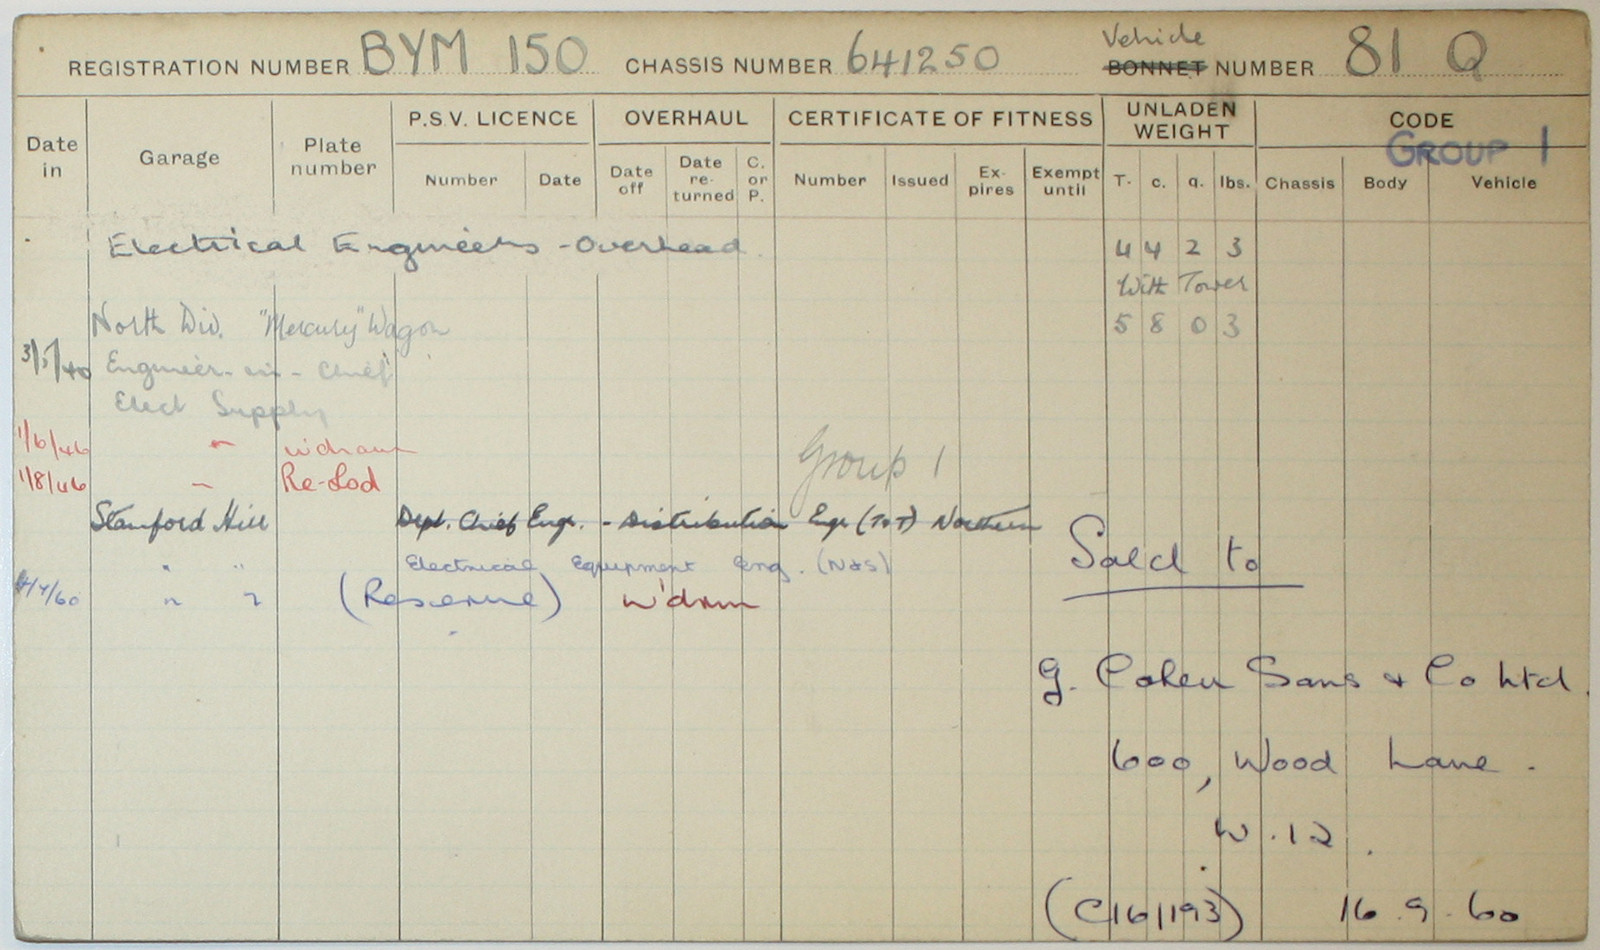 REGISTRATION NUMBER BYM 150 CHASSIS NUMBER 641250 Vehicle BONNET NUMBER 81 Q
Date in Garage Plate number P.S.V. LICENCE OVERHAUL CERTIFICATE OF FITNESS UNLADEN WEIGHT CODE
GROUP 1
Number Date Date off Date re-turned C. or P. Number Issued Ex-pires Exempt until T. c. q. lbs. Chassis Body Vehicle
Electrical Engineers - Overhead. 4 4 2 3
With Tower
North Div. "Mercury" Wagon 5 8 0 3
3/5/40 Engineer-in-Chief
Elect Supply
1/6/46 " w'drawn Group 1
1/8/46 " Re-Lod
Stamford Hill Dept. Chief Engr. - Distribution Engr (T&T) Northern
Sold to
" " Electrical Equipment Eng. (N&S)
/4/60 " " (Reserve) w'drwn
G. Cohen Sons & Co Ltd.
600, Wood Lane.
W.12.
(C16/193) 16.9.60